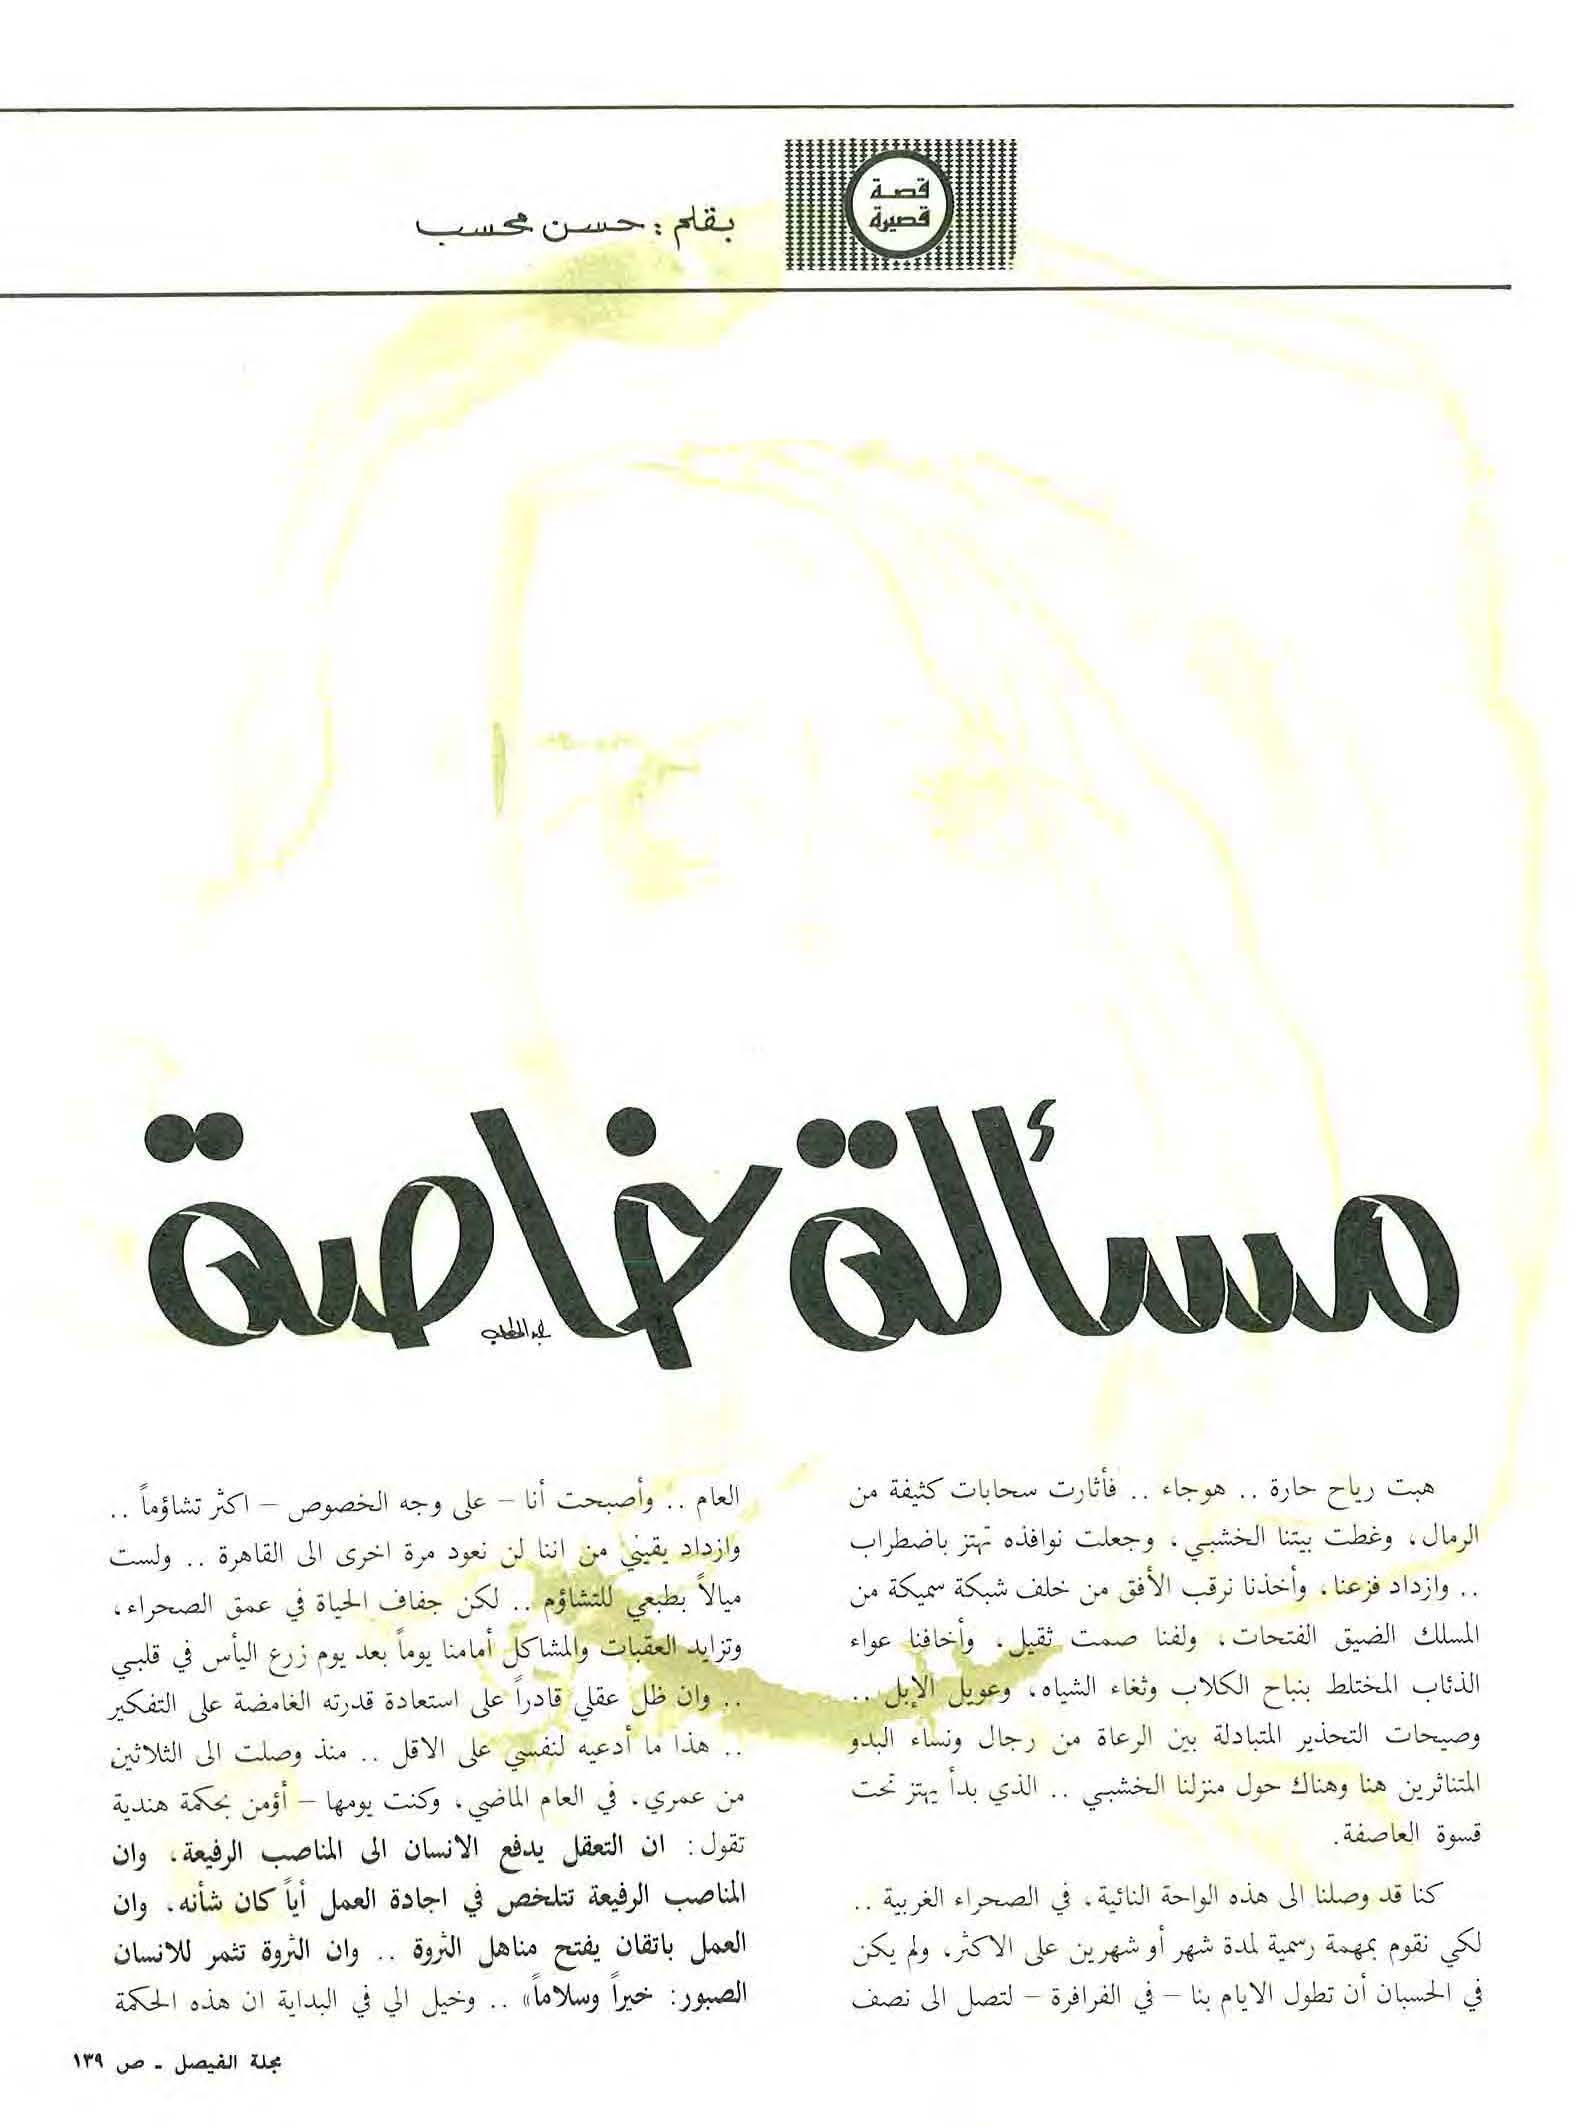 قصة
قصيرة
بقلم : حسن محسب
مسألة خاصة
هبت رياح حارة .. هوجاء .. فأثارت سحابات كثيفة من
الرمال ، وغطت بيتنا الخشبي ، وجعلت نوافذه تهتز باضطراب
.. وازداد فزعنا ، وأخذنا نرقب الأفق من خلف شبكة سميكة من
المسلك الضيق الفتحات ، ولفنا صمت ثقيل ، وأخافنا عواء
الذئاب المختلط بنباح الكلاب وثغاء الشياه ، وعويل الإبل ..
وصيحات التحذير المتبادلة بين الرعاة من رجال ونساء البدو
المتناثرين هنا وهناك حول منزلنا الخشبي .. الذي بدأ يهتز تحت
قسوة العاصفة .
كنا قد وصلنا الى هذه الواحة النائية ، في الصحراء الغربية ..
لكي نقوم بمهمة رسمية لمدة شهر أو شهرين على الاكثر ، ولم يكن
في الحسبان أن تطول الايام بنا – في الفرافرة – لتصل الى نصف
العام .. وأصبحت أنا – على وجه الخصوص – اكثر تشاؤماً ..
وازداد يقيني من اننا لن نعود مرة اخرى الى القاهرة .. ولست
ميالاً بطبعي للتشاؤم .. لكن جفاف الحياة في عمق الصحراء ،
وتزايد العقبات والمشاكل أمامنا يوماً بعد يوم زرع اليأس في قلبي
.. وان ظل عقلي قادراً على استعادة قدرته الغامضة على التفكير
.. هذا ما أدعيه لنفسي على الاقل .. منذ وصلت الى الثلاثين
من عمري ، في العام الماضي ، وكنت يومها – أؤمن بحكمة هندية
تقول : ان التعقل يدفع الانسان الى المناصب الرفيعة ، وان
المناصب الرفيعة تتلخص في اجادة العمل أياً كان شأنه ، وان
العمل باتقان يفتح مناهل الثروة .. وان الثروة تثمر للانسان
الصبور : خيراً وسلاماً» .. وخيل الي في البداية ان هذه الحكمة
مجلة الفيصل - ص ١٣٩